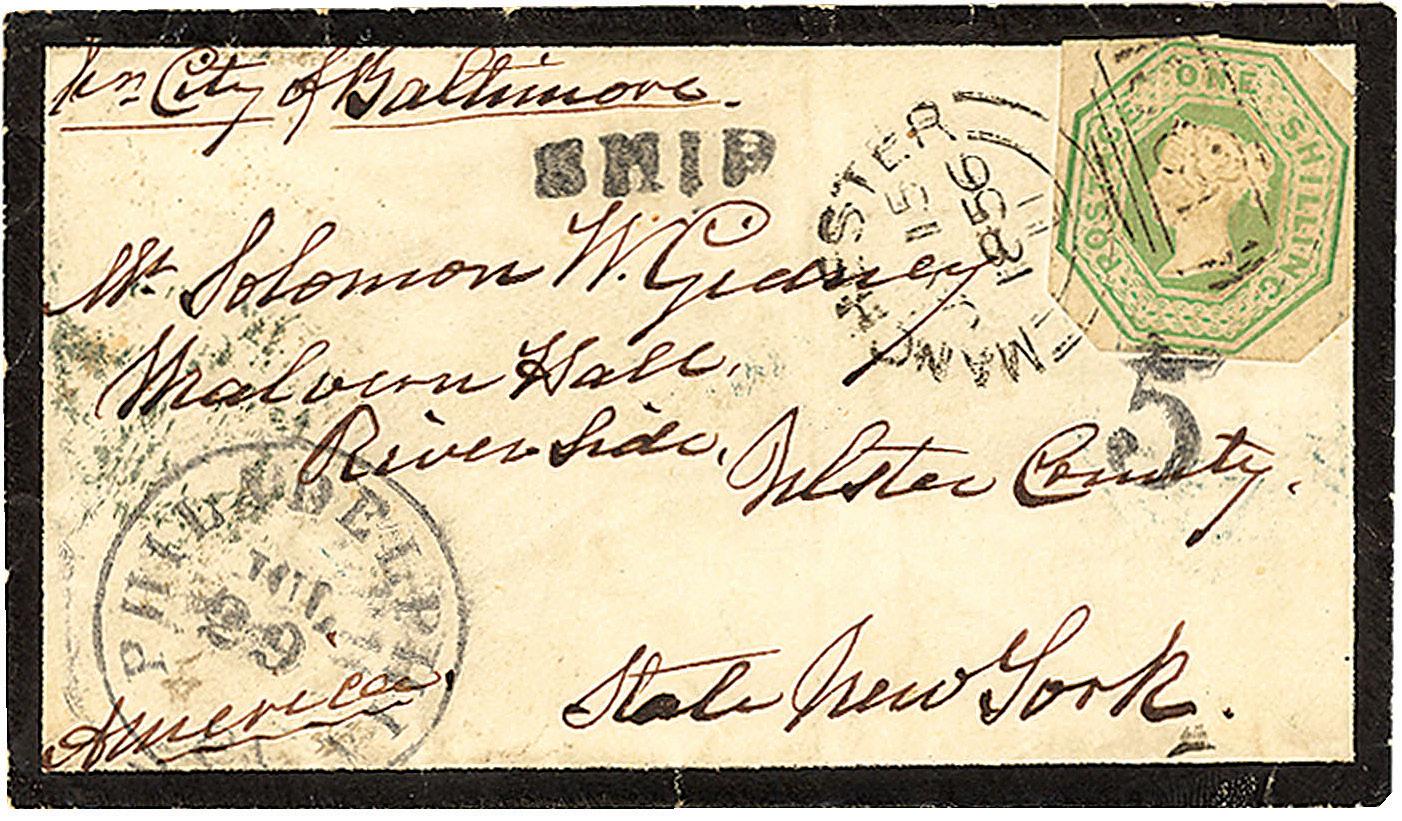 per City of Baltimore.
SHIP
POSTAGE ONE SHILLING
MANCHESTER
15
1856
5
Mr Solomon W. Gidney
Malvern Hall.
River Side, Ulster County.
PHILADELPHIA
JUL
29
America.
State New York.